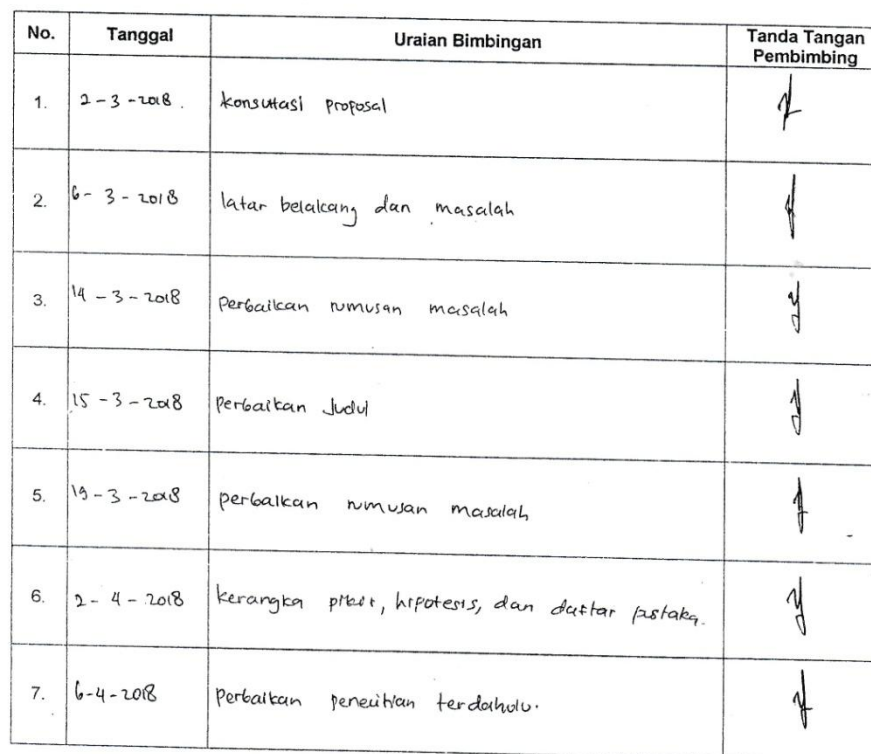 No. Tanggal Uraian Bimbingan Tanda Tangan
Pembimbing
1. 2-3-2018. konsultasi proposal
2. 6-3-2018 latar belakang dan masalah
3. 14-3-2018 perbaikan rumusan masalah
4. 15-3-2018 perbaikan Judul
5. 19-3-2018 perbaikan rumusan masalah
6. 2-4-2018 kerangka pikir, hipotesis, dan daftar pustaka.
7. 6-4-2018 perbaikan penelitian terdahulu.